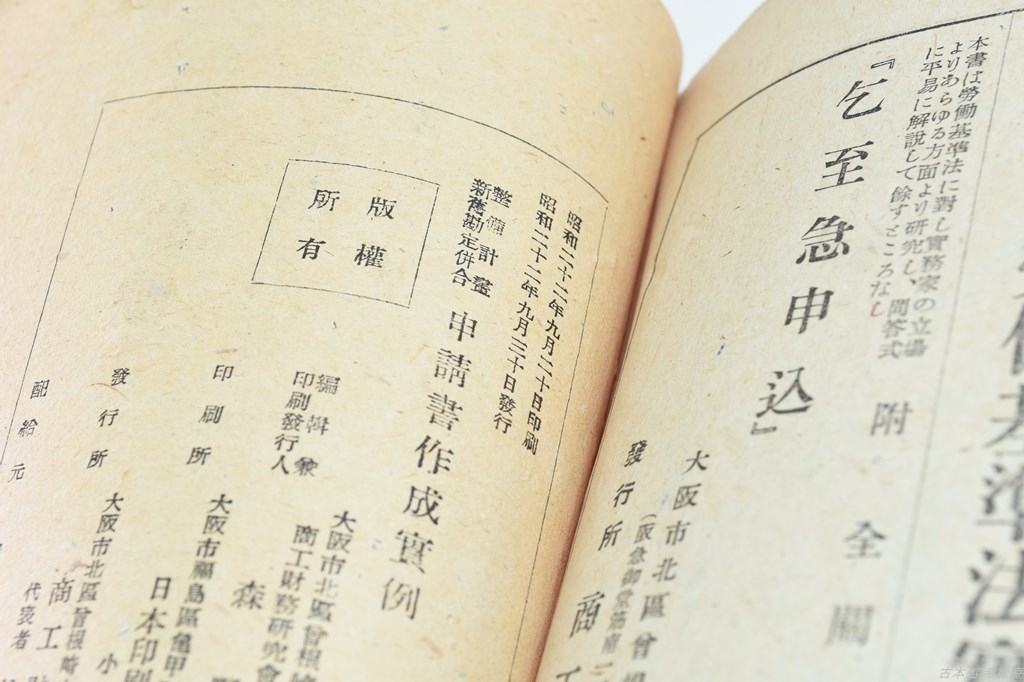 本書は勞働基準法に對し實務家の立場
よりあらゆる方面より研究し、問答式
に平易に解説して餘すところなし
『乞至急申込』
附
全
大阪市北區曾根
(阪急御堂筋南
發行所 商工
昭和二十二年九月二十日印刷
昭和二十二年九月三十日發行
整備計畫
新舊勘定併合
申請書作成實例
版權
所有
編輯兼
印刷發行人
大阪市北區曾根
商工財務研究會
森
印刷所
大阪市福島區龜甲
日本印刷
發行所
大阪市北區曾根崎
商工財
代表者 小
配給元